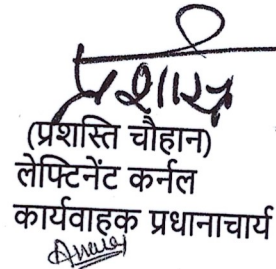 प्रशस्ति
(प्रशस्ति चौहान)
लेफ्टिनेंट कर्नल
कार्यवाहक प्रधानाचार्य